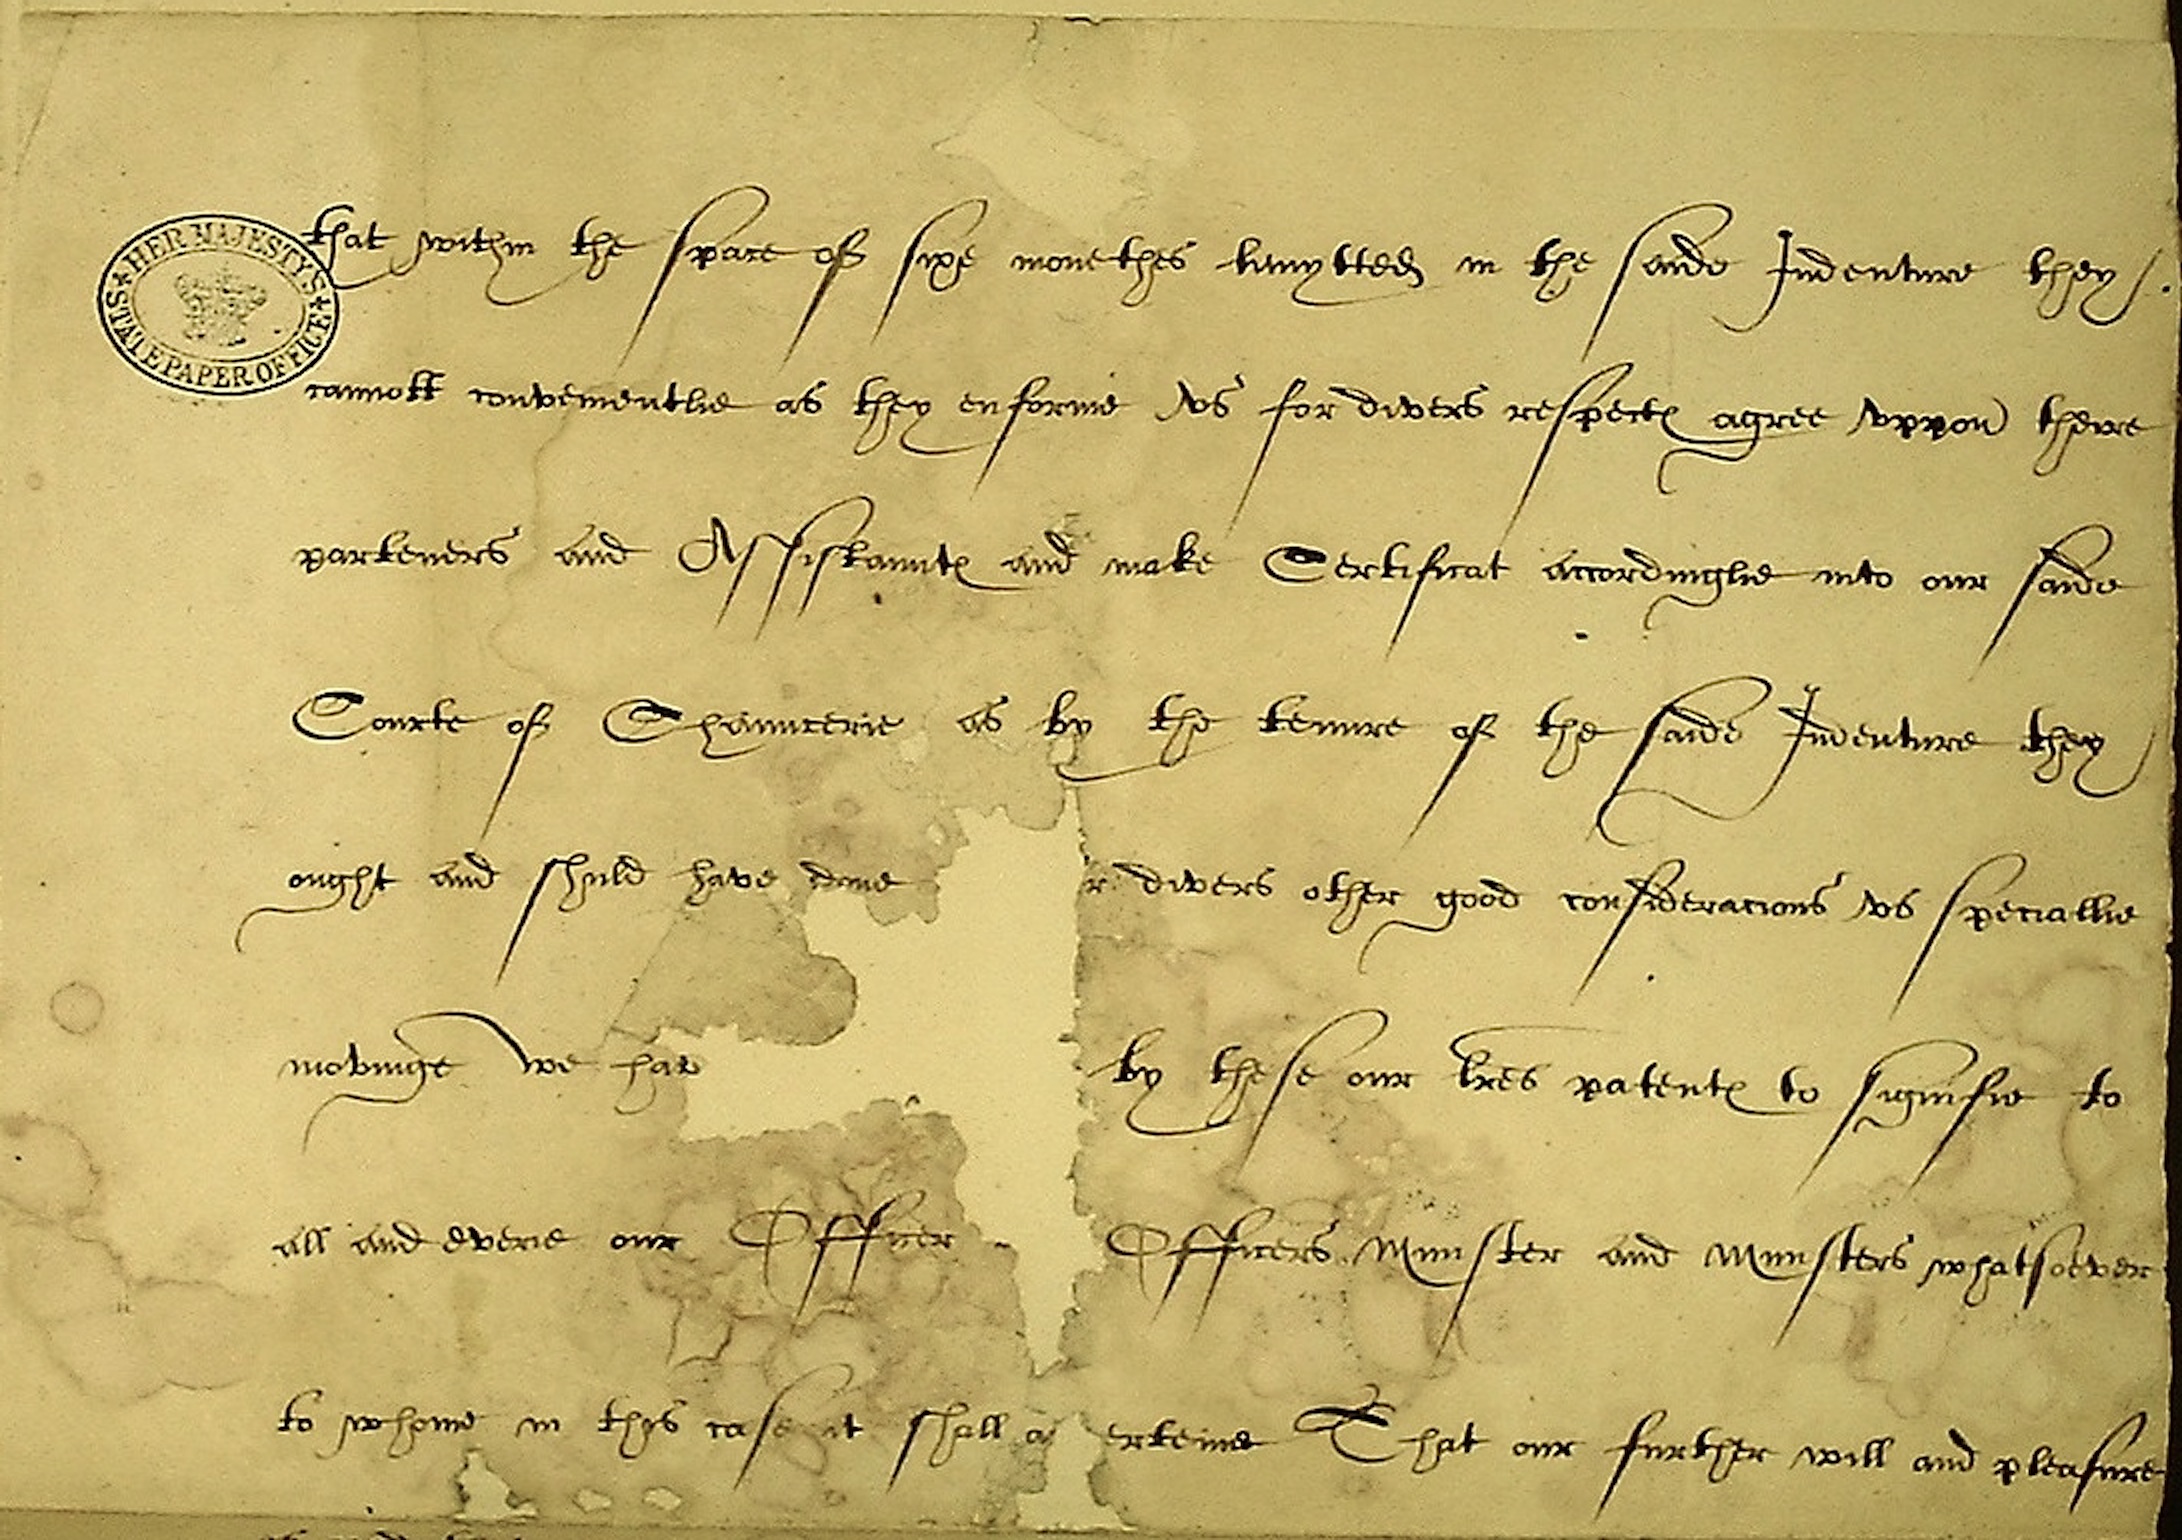 HER MAJESTY'S STATE PAPER OFFICE
that within the space of sixe monethes lymytted in the saide Indenture they
cannott convenientlie as they enforme vs for divers respectes agree vppon theire
parteners and Assistauntes and make Certificat accordinglie into our saide
Courte of Chauncerie as by the tenure of the saide Indenture they
ought and shuld have done r divers other good consideracions vs speciallie
movinge we hav by these our lres patentes to signifie to
all and everie our Officer Officers Minister and Ministers whatsoever
to whome in this case it shall a erteine That our further will and pleasure